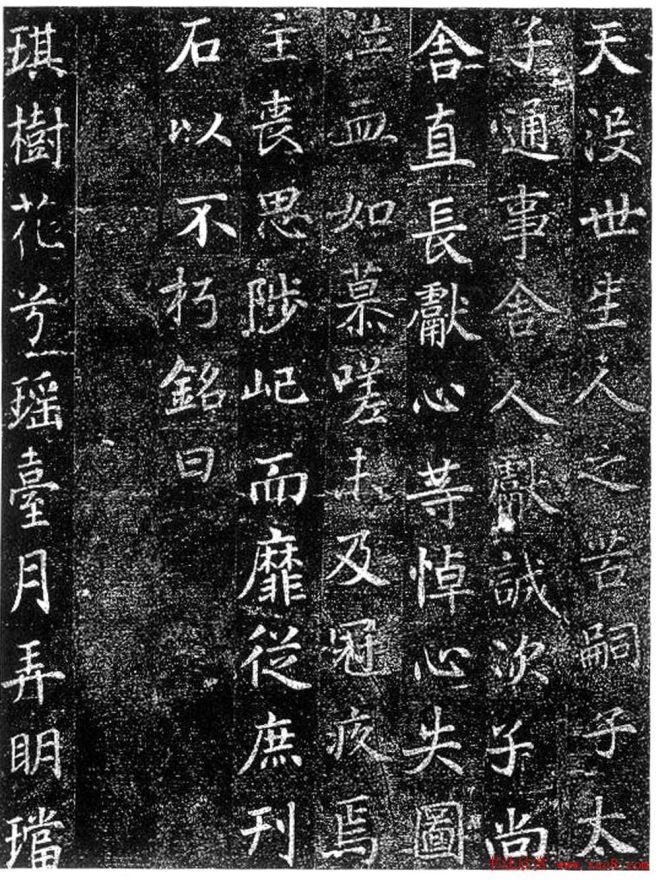 天没世生人之苦嗣子太
子通事舍人獻誠次子尚
舍直長獻心等悼心失圖
泣血如慕嗟未及冠疚焉
主喪思陟屺而靡從庶刊
石以不朽銘曰
琪樹花兮瑶臺月弄明璫
www.yac8.com